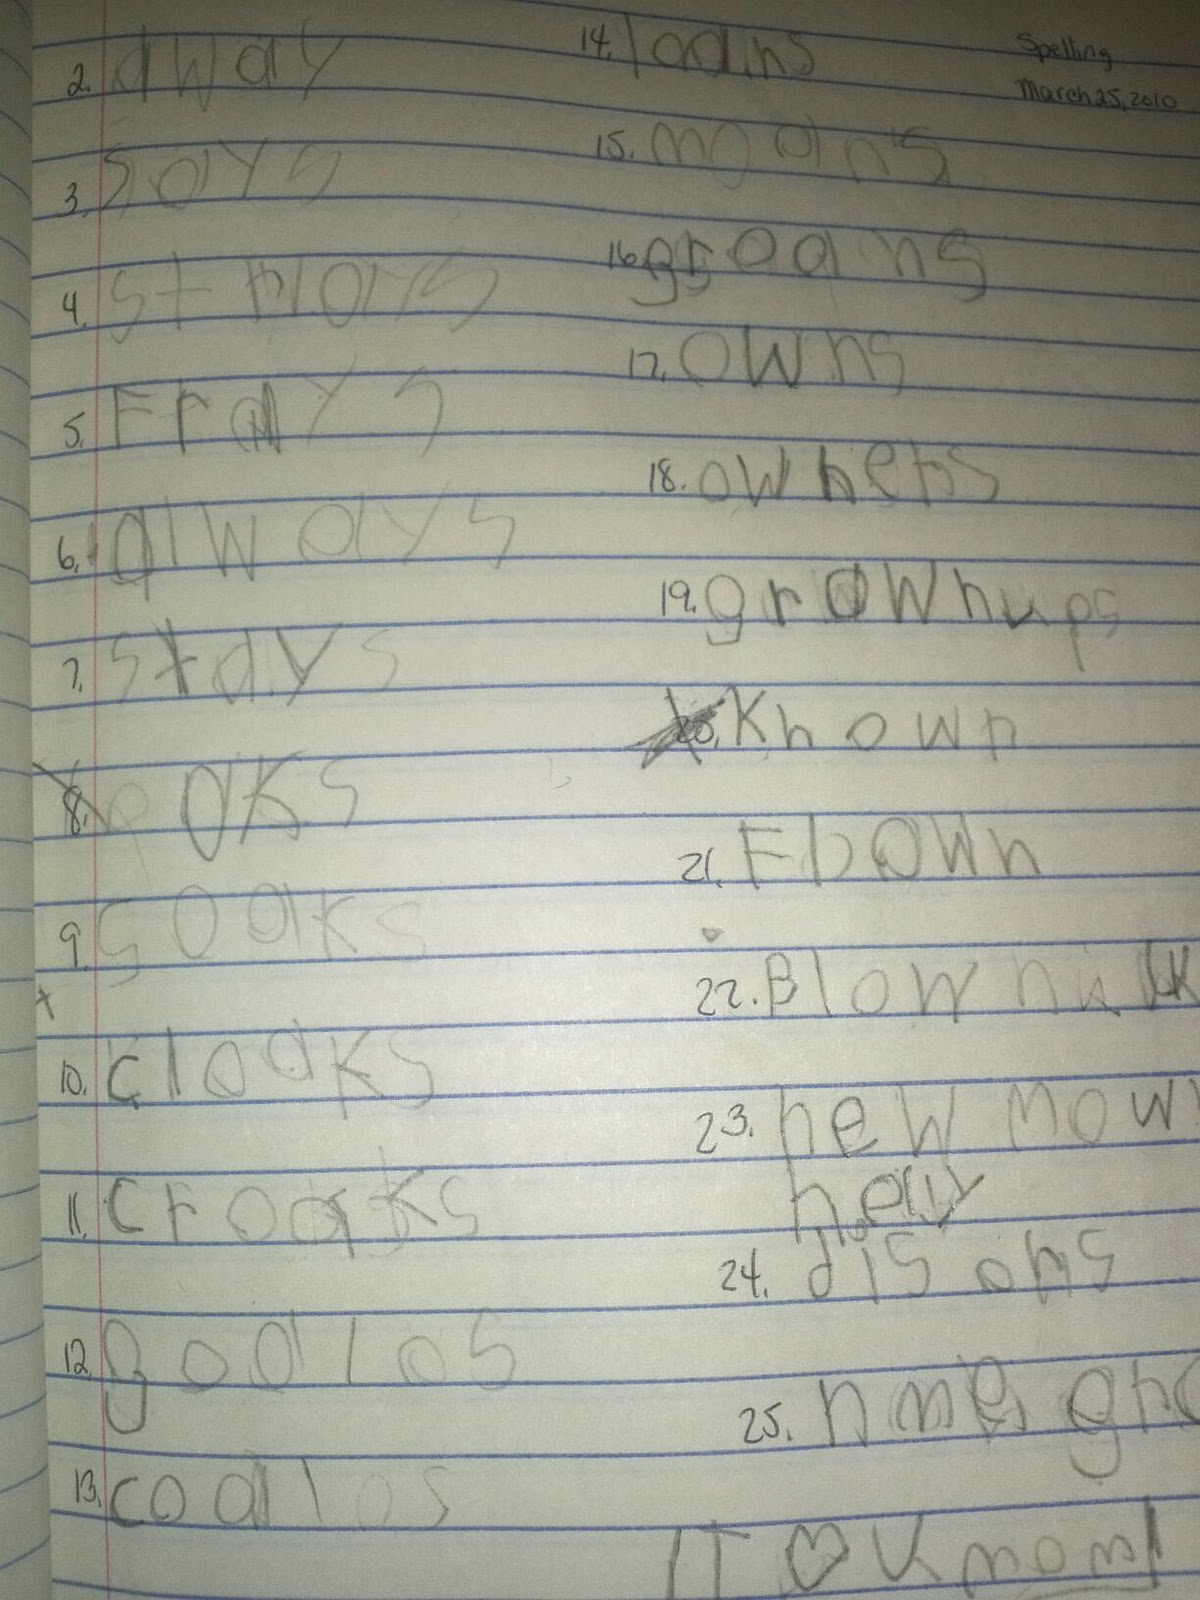 Spelling
March 25, 2010
2. away
3. says
4. strays
5. Frays
6. always
7. stays
8. oaks
9. soaks
10. cloaks
11. croaks
12. goalos
13. coalos
14. loains
15. moans
16. groans
17. owns
18. owners
19. grownups
20. Known
21. Flown
22. Blown
23. new mow
24. disons
25.
I ♡ U mom!